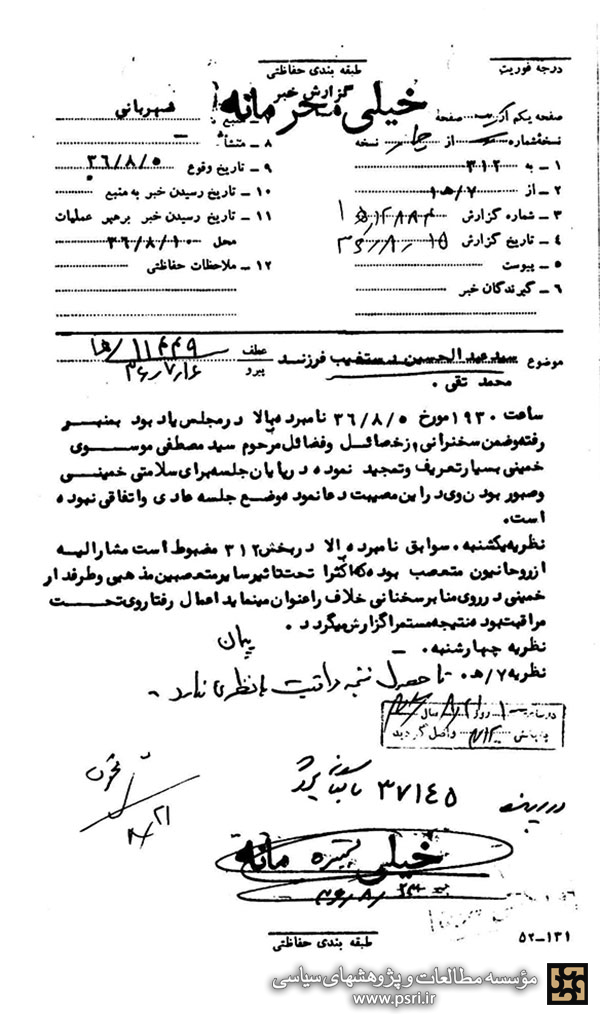 درجه فوریت
طبقه بندی حفاظتی
گزارش خبر
خیلی محرمانه
صفحه یکم از صفحه
نسخه شماره از چهار نسخه
۱ ـ به ۳۱۲
۲ ـ از ۷/ه‍
۳ ـ شماره گزارش
۴ ـ تاریخ گزارش ۳۶/۸/۱۵
۵ ـ پیوست
۶ ـ گیرندگان خبر
شهربانی
۸ ـ منشأ
۹ ـ تاریخ وقوع ۳۶/۸/۵
۱۰ ـ تاریخ رسیدن خبر به منبع
۱۱ ـ تاریخ رسیدن خبر برهبر عملیات
محل ۳۶/۸/۱۰
۱۲ ـ ملاحظات حفاظتی
موضوع سید عبدالحسین دستغیب فرزند
محمد تقی .
عطف ۱۱۴۴۹/ه‍
پیرو ۳۶/۷/۱۶
ساعت ۱۹۳۰ مورخ ۳۶/۸/۵ نامبرده بالا در مجلس یاد بود بمنبر
رفته و ضمن سخنرانی از خصائل و فضائل مرحوم سید مصطفی موسوی
خمینی بسیار تعریف و تمجید نموده در پایان جلسه برای سلامتی خمینی
و صبور بودن وی در این مصیبت دعا نمود وضع جلسه عادی و اتفاقی نبوده
است.
نظریه یکشنبه . سوابق نامبرده بالا در بخش ۳۱۲ مضبوط است مشارالیه
از روحانیون متعصب بوده که اکثرا تحت تاثیر سایر متعصبین مذهبی و طرفدار
خمینی در روی منابر سخنانی خلاف را عنوان مینماید اعمال و رفتار وی تحت
مراقبت بوده نتیجه مستمرا گزارش میگردد .
نظریه چهارشنبه . ـ
نظریه ۷/ه‍ . تا حصول نتیجه مراقبت نظری ندارد .
روز سال
به بخش ۳۱۲ واصل گردید
۳۷۱۴۵
۸/۲۱
خیلی محرمانه
طبقه بندی حفاظتی
۵۲-۱۳۱
مؤسسه مطالعات و پژوهشهای سیاسی
www.psri.ir